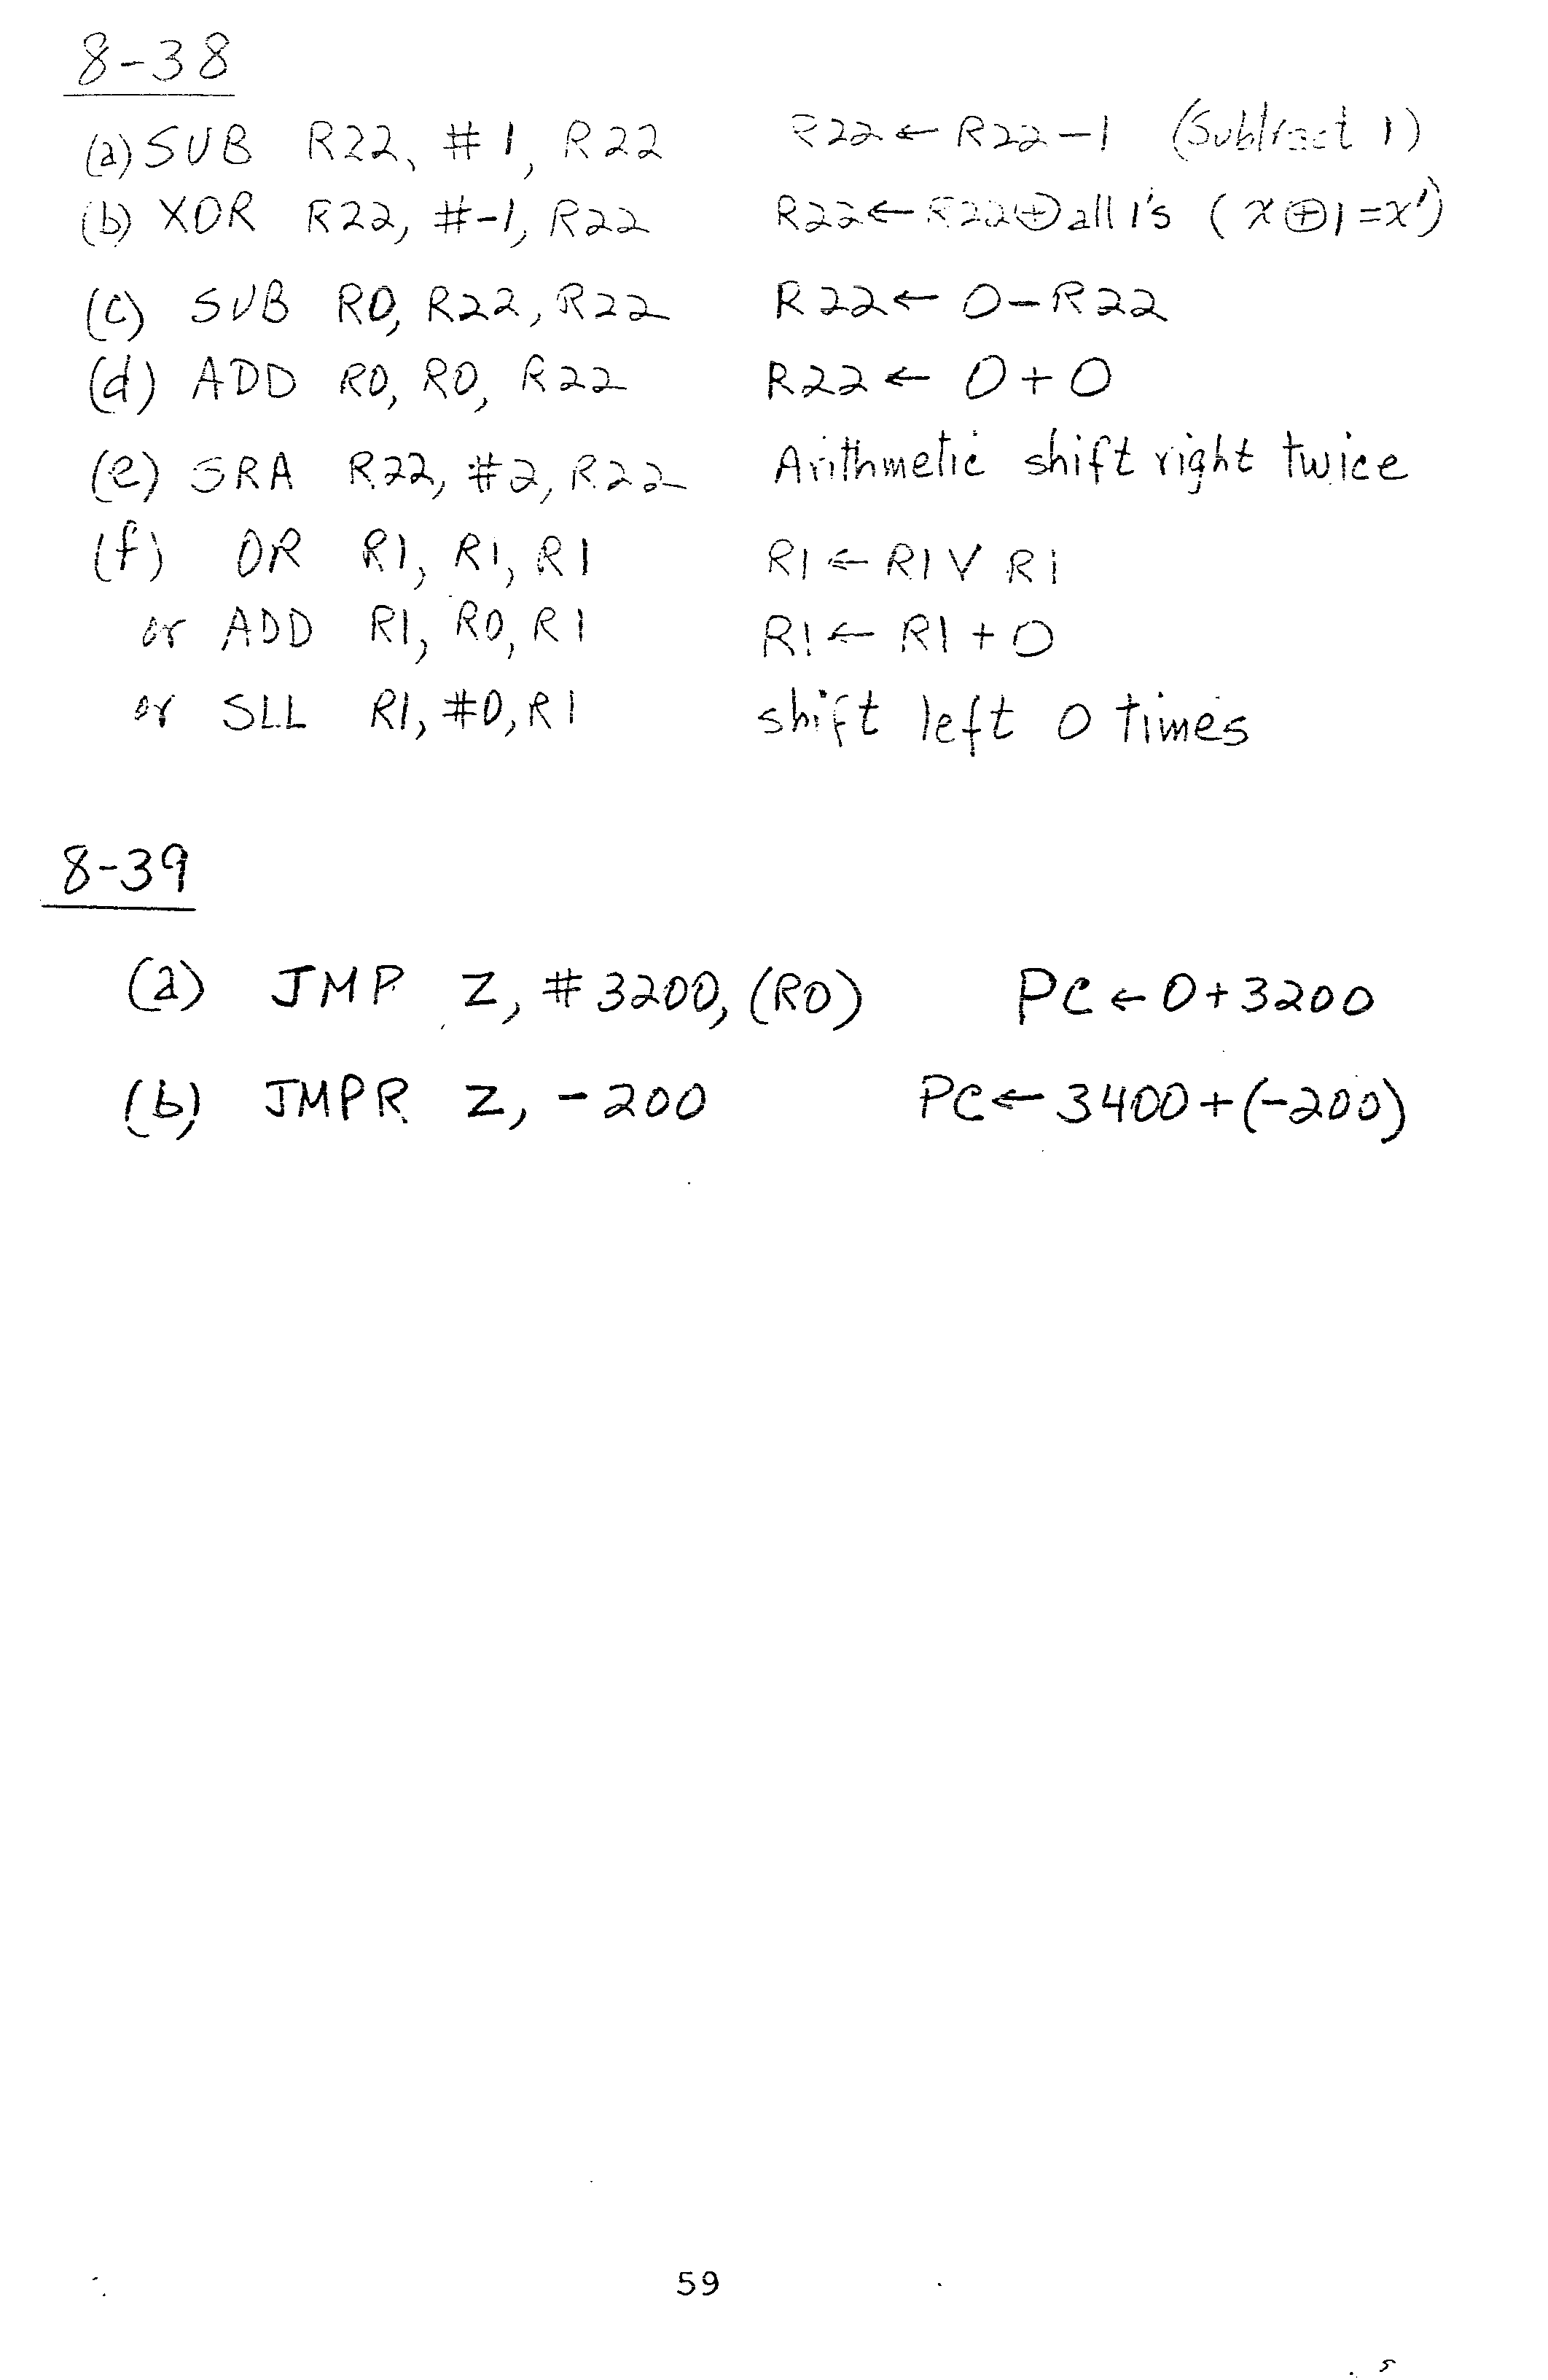 8-38
(a) SUB R22, #1, R22 R22 ← R22 - 1 (Subtract 1)
(b) XOR R22, #-1, R22 R22 ← R22 ⊕ all 1's (x ⊕ 1 = x')
(c) SUB R0, R22, R22 R22 ← 0 - R22
(d) ADD R0, R0, R22 R22 ← 0 + 0
(e) SRA R22, #2, R22 Arithmetic shift right twice
(f) OR R1, R1, R1 R1 ← R1 V R1
or ADD R1, R0, R1 R1 ← R1 + 0
or SLL R1, #0, R1 shift left 0 times
8-39
(a) JMP Z, #3200, (R0) PC ← 0 + 3200
(b) JMPR Z, -200 PC ← 3400 + (-200)
59